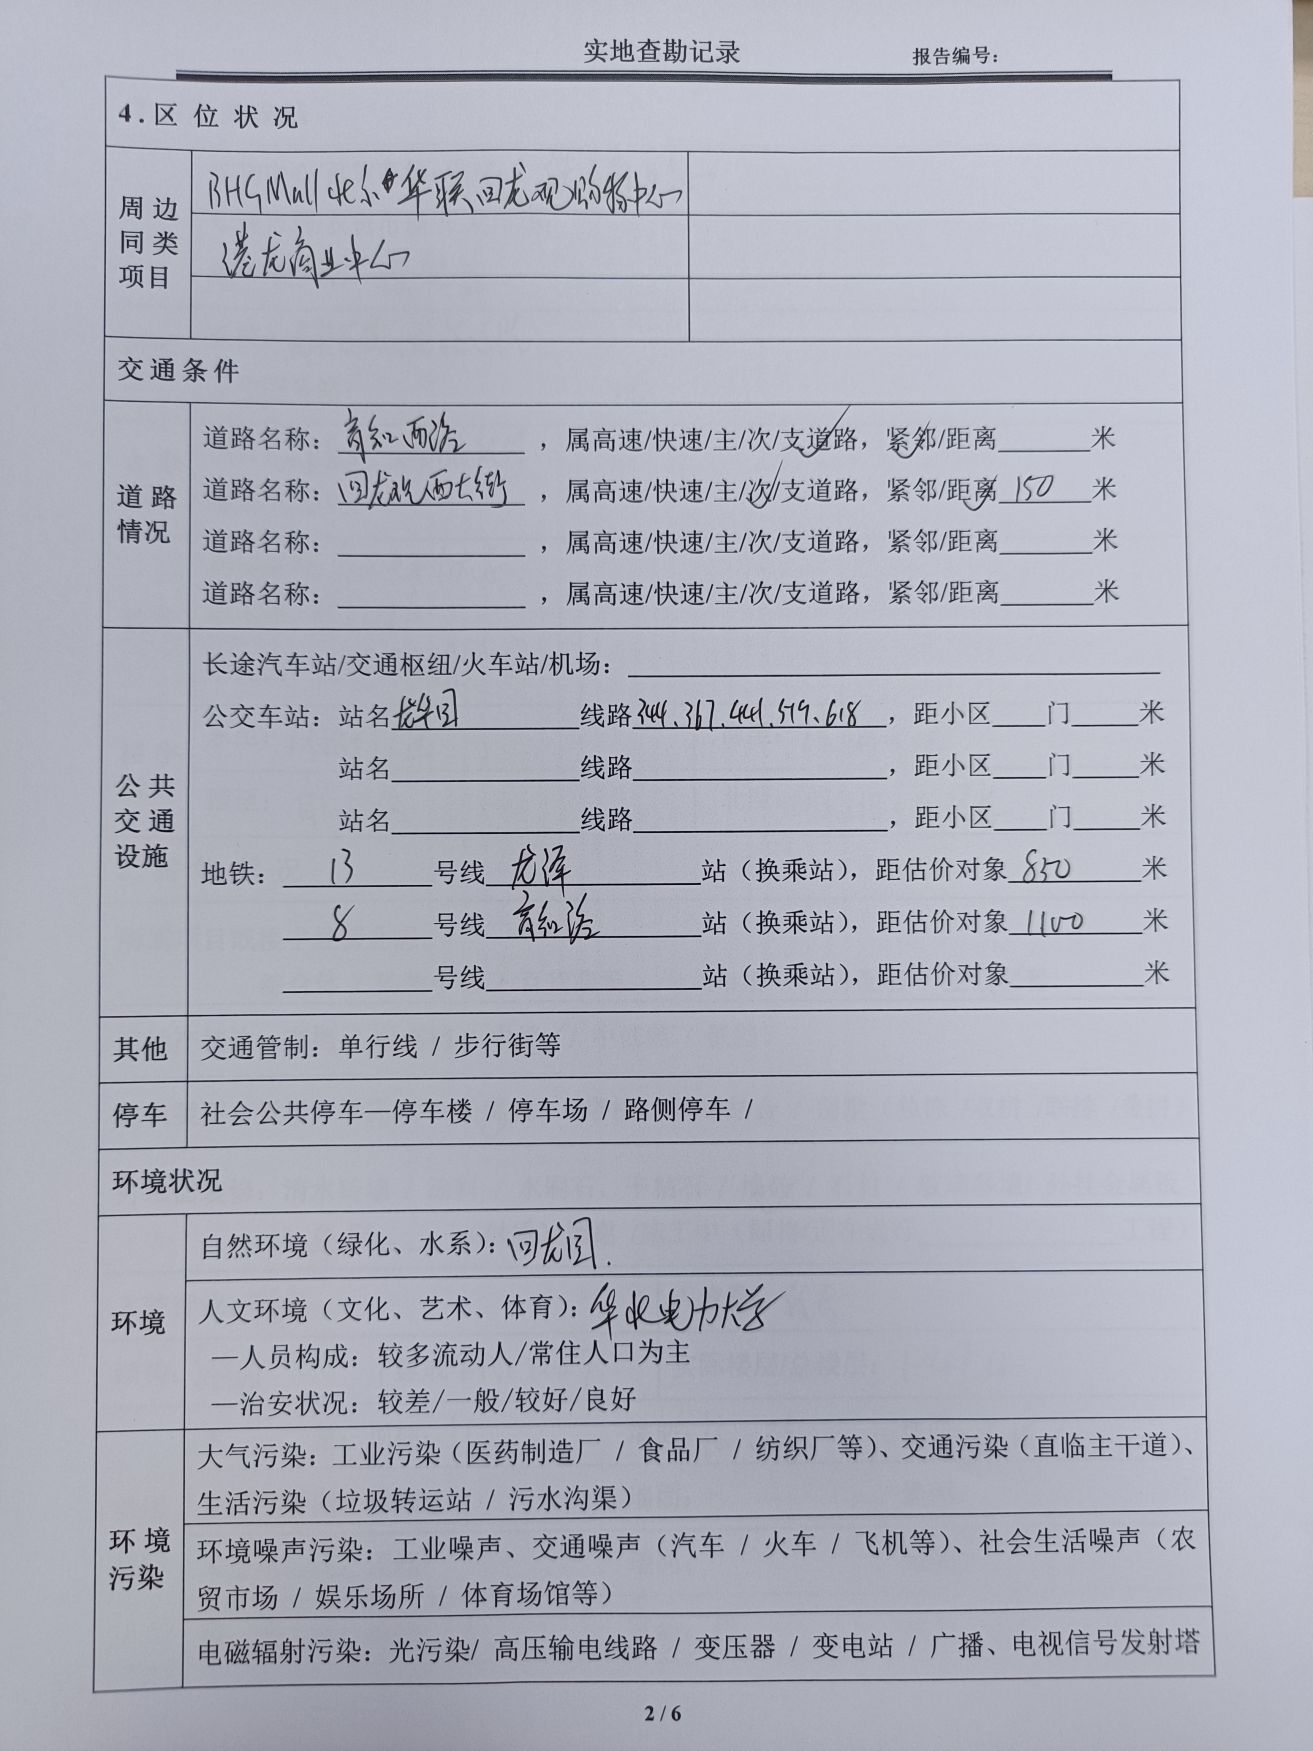 实地查勘记录
报告编号：
4.区位状况
周边同类项目
BHG Mall 北京华联回龙观购物中心
港龙商业中心
交通条件
道路情况
道路名称：育知西路，属高速/快速/主/次/支道路，紧邻/距离______米
道路名称：回龙观西大街，属高速/快速/主/次/支道路，紧邻/距离150米
道路名称：____________，属高速/快速/主/次/支道路，紧邻/距离______米
道路名称：____________，属高速/快速/主/次/支道路，紧邻/距离______米
公共交通设施
长途汽车站/交通枢纽/火车站/机场：____________
公交车站：站名龙华园线路344、367、441、519、618，距小区____门____米
站名____________线路____________，距小区____门____米
站名____________线路____________，距小区____门____米
地铁：13号线龙泽站（换乘站），距估价对象850米
8号线育知路站（换乘站），距估价对象1100米
______号线____________站（换乘站），距估价对象______米
其他
交通管制：单行线 / 步行街等
停车
社会公共停车—停车楼 / 停车场 / 路侧停车 /
环境状况
环境
自然环境（绿化、水系）：回龙园.
人文环境（文化、艺术、体育）：华北电力大学
—人员构成：较多流动人/常住人口为主
—治安状况：较差/一般/较好/良好
环境污染
大气污染：工业污染（医药制造厂 / 食品厂 / 纺织厂等）、交通污染（直临主干道）、
生活污染（垃圾转运站 / 污水沟渠）
环境噪声污染：工业噪声、交通噪声（汽车 / 火车 / 飞机等）、社会生活噪声（农
贸市场 / 娱乐场所 / 体育场馆等）
电磁辐射污染：光污染/ 高压输电线路 / 变压器 / 变电站 / 广播、电视信号发射塔
2 / 6